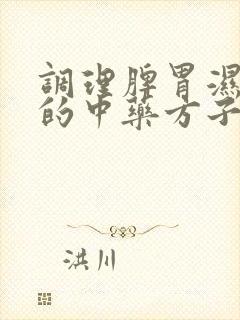 調理脾胃濕
的中藥方子
洪川